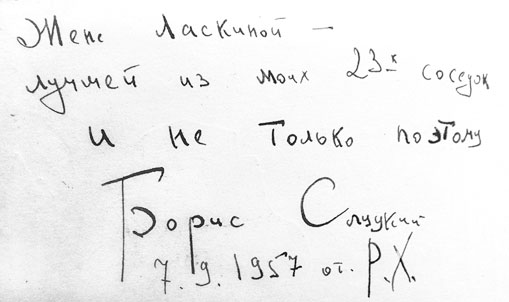 Жене Ласкиной —
лучшей из моих 23х соседок
и не только поэтому
Борис Слуцкий
7.9.1957 от. Р.Х.